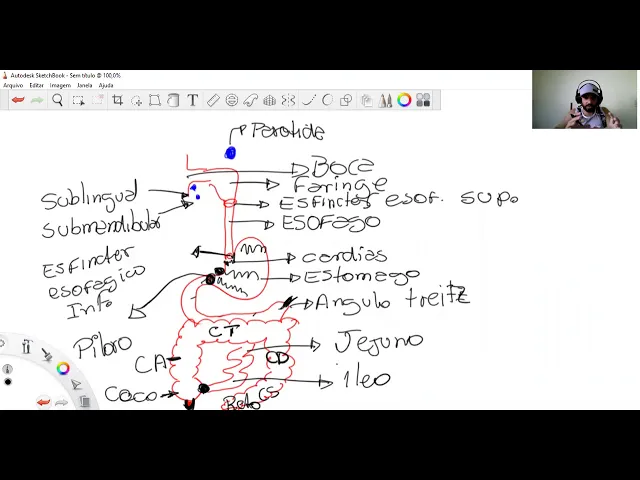 Autodesk SketchBook - Sem título @ 100,0%
Arquivo Editar Imagem Janela Ajuda
Parotide
Boca
Faringe
Sublingual
Esfincter esof. sup.
Submandibular
ESOFAGO
Esfincter
esofagico
Inf.
cardias
Estomago
Angulo treitz
Piloro
CT
Jejuno
CA
CD
Ceco
ileo
Reto
CS